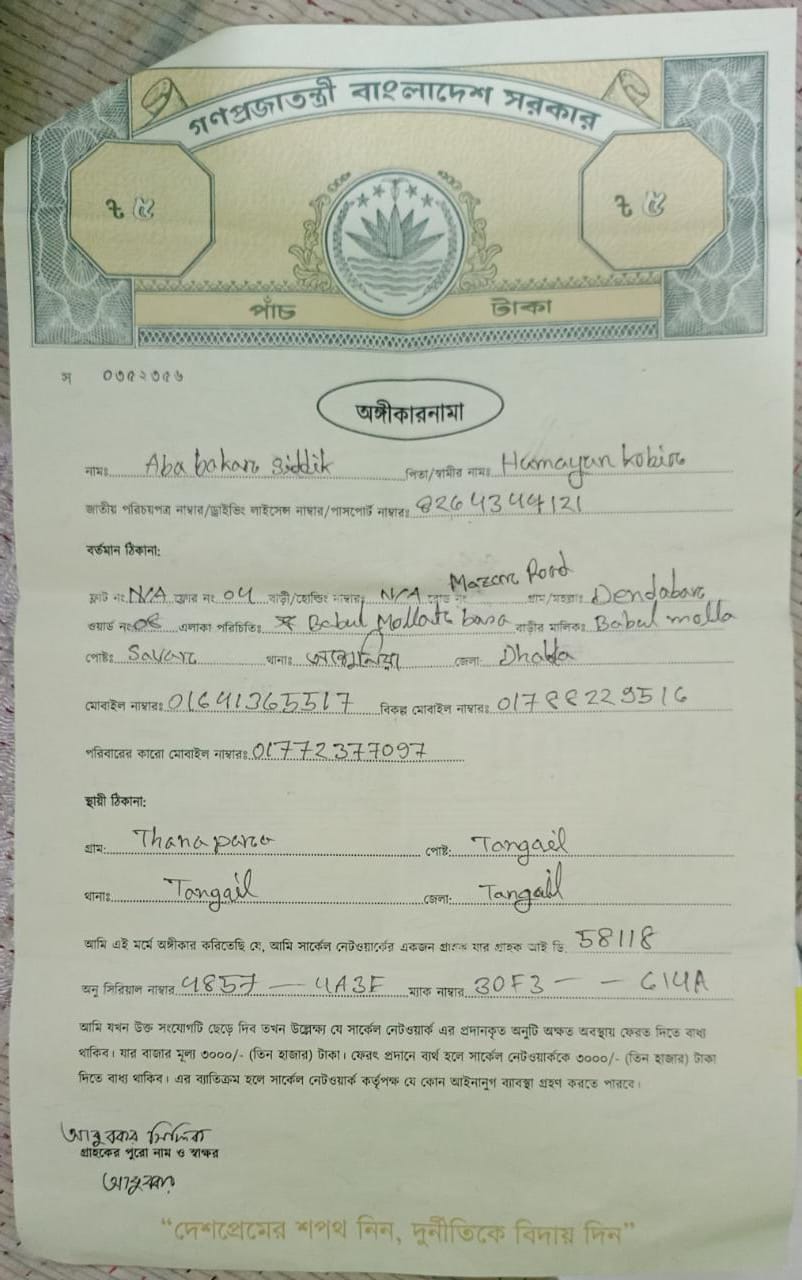 গণপ্রজাতন্ত্রী বাংলাদেশ সরকার
৳ ৫ ৳ ৫
পাঁচ টাকা
স ০৩৫২৩৫৬
অঙ্গীকারনামা
নামঃ Aba bakar Siddik পিতা/স্বামীর নামঃ Humayun kobir
জাতীয় পরিচয়পত্র নাম্বার/ড্রাইভিং লাইসেন্স নাম্বার/পাসপোর্ট নাম্বারঃ 8264344121
বর্তমান ঠিকানা:
ফ্লাট নং N/A ফ্লোর নং 04 বাড়ী/হোল্ডিং নাম্বারঃ N/A রোড নং Mazar Road গ্রাম/মহল্লাঃ Dendabar
ওয়ার্ড নং 08 এলাকা পরিচিতিঃ Babul Mollar basa বাড়ীর মালিকঃ Babul molla
পোষ্টঃ Savar থানাঃ আশুলিয়া জেলা: Dhaka
মোবাইল নাম্বারঃ 01641365517 বিকল্প মোবাইল নাম্বারঃ 01788229516
পরিবারের কারো মোবাইল নাম্বারঃ 01772377097
স্থায়ী ঠিকানা:
গ্রাম: Thana para পোষ্ট: Tangail
থানাঃ Tangail জেলা: Tangail
আমি এই মর্মে অঙ্গীকার করিতেছি যে, আমি সার্কেল নেটওয়ার্কের একজন গ্রাহক যার গ্রাহক আই ডি 58118
অনু সিরিয়াল নাম্বার 4857 — 4A3F ম্যাক নাম্বার 30F3 — — 614A
আমি যখন উক্ত সংযোগটি ছেড়ে দিব তখন উল্লেখ্য যে সার্কেল নেটওয়ার্ক এর প্রদানকৃত অনুটি অক্ষত অবস্থায় ফেরত দিতে বাধ্য
থাকিব। যার বাজার মূল্য ৩০০০/- (তিন হাজার) টাকা। ফেরৎ প্রদানে ব্যর্থ হলে সার্কেল নেটওয়ার্ককে ৩০০০/- (তিন হাজার) টাকা
দিতে বাধ্য থাকিব। এর ব্যাতিক্রম হলে সার্কেল নেটওয়ার্ক কর্তৃপক্ষ যে কোন আইনানুগ ব্যাবস্থা গ্রহণ করতে পারবে।
আবুবকর সিদ্দিক
গ্রাহকের পুরো নাম ও স্বাক্ষর
আবুবকর
“দেশপ্রেমের শপথ নিন, দুর্নীতিকে বিদায় দিন”